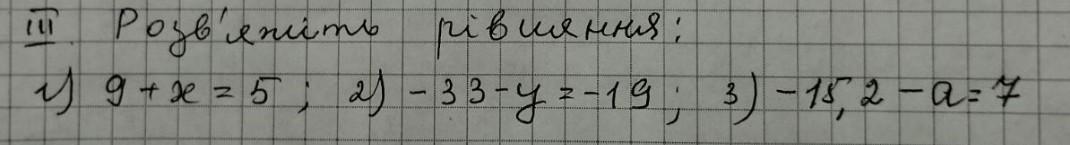 III. Розв'яжіть рівняння:
1) 9 + x = 5 ; 2) -33 - y = -19 ; 3) -15,2 - a = 7